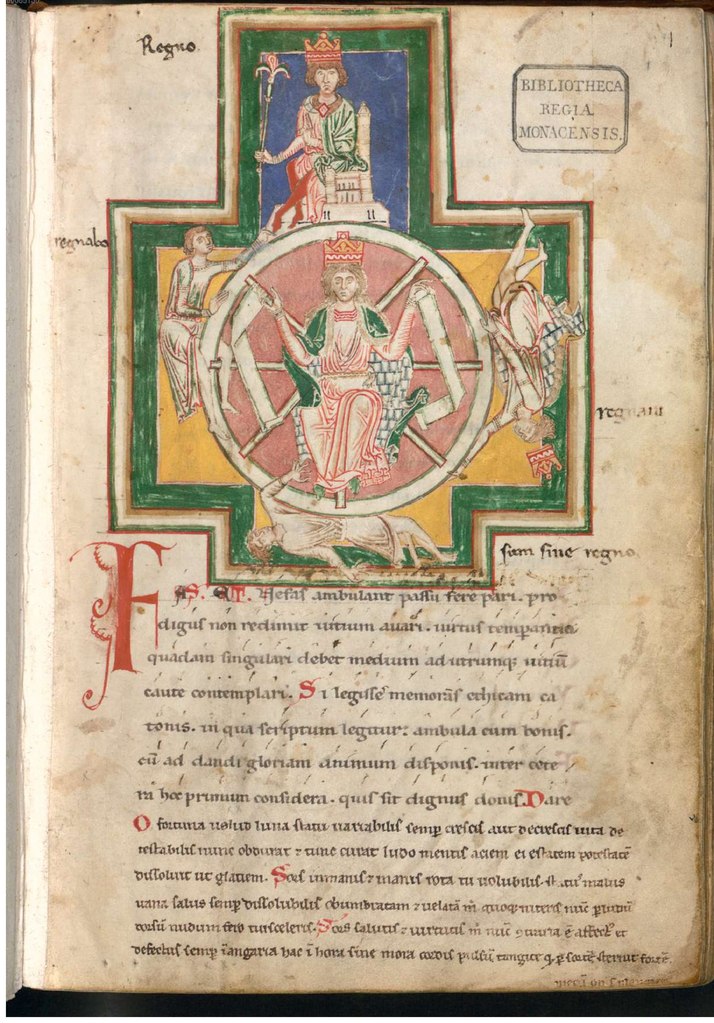 Regno.
1
BIBLIOTHECA
REGIA
MONACENSIS.
regnabo
regnaui
sum sine regno.
FAS. ET. Nefas ambulant passu fere pari. pro
digus non redimit uitium auari. uirtus temperantia
quadam singulari debet medium ad utrumq; uitiū
caute contemplari. Si legisse memorās ethicam ca
tonis. in qua scriptum legitur: ambula cum bonis.
cū ad dandi gloriam animum disponis. inter cete
ra hoc primum considera. quis sit dignus donis. Dare
O fortuna uelud luna statu uariabilis semp crescis aut decrescis uita de
testabilis nunc obdurat ⁊ tunc curat ludo mentis aciem egestatem potestatē
dissoluit ut glaciem. Sors inmanis ⁊ inanis rota tu uolubilis. statᷣ malus
uana salus semp dissolubilis obumbratam ⁊ uelatā m quoq; niteris nūc p ludū
dorsū nudum fero tui sceleris. Sors salutis ⁊ uirtutis m nūc ɔtraria ē affect et
defectus semp ī angaria hac ī hora sine mora cordis pulsū tangite q p sortē sternit fortē